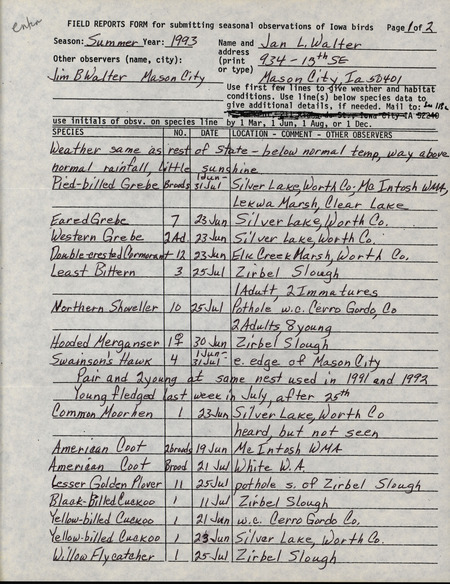 enter
FIELD REPORTS FORM for submitting seasonal observations of Iowa birds Page 1 of 2
Season: Summer Year: 1993 Name and Jan L. Walter
address 934 - 15th SE
Other observers (name, city): (print
or type) Mason City, Ia 50401
Jim B Walter Mason City
Use first few lines to give weather and habitat
conditions. Use line(s) below species data to
give additional details, if needed. Mail to:
Iowa City IA 52240
use initials of obsv. on species line by 1 Mar, 1 Jun, 1 Aug, or 1 Dec.
SPECIES NO. DATE LOCATION - COMMENT - OTHER OBSERVERS
Weather same as rest of State - below normal temp, way above
normal rainfall, little sunshine
Pied-billed Grebe Broods 1Jun-31Jul Silver Lake, Worth Co. Mc Intosh WMA,
Lekwa Marsh, Clear Lake
Eared Grebe 7 23 Jun Silver Lake, Worth Co.
Western Grebe 2 Ad. 23 Jun Silver Lake, Worth Co.
Double-crested Cormorant 12 23 Jun Elk Creek Marsh, Worth Co.
Least Bittern 3 25 Jul Zirbel Slough
1 Adult, 2 Immatures
Northern Shoveller 10 25 Jul Pothole w.c. Cerro Gordo, Co
2 Adults, 8 young
Hooded Merganser 1♀ 30 Jun Zirbel Slough
Swainson's Hawk 4 1Jun-31Jul e. edge of Mason City
Pair and 2 young at same nest used in 1991 and 1992
Young fledged last week in July, after 25th
Common Moorhen 1 23 Jun Silver Lake, Worth Co
heard, but not seen
American Coot 2broods 19 Jun Mc Intosh WMA
American Coot Brood 21 Jul White W.A.
Lesser Golden Plover 11 25 Jul pothole s. of Zirbel Slough
Black-Billed Cuckoo 1 11 Jul Zirbel Slough
Yellow-billed Cuckoo 1 21 Jun w.c. Cerro Gordo Co.
Yellow-billed Cuckoo 1 23 Jun Silver Lake, Worth Co.
Willow Flycatcher 1 25 Jul Zirbel Slough